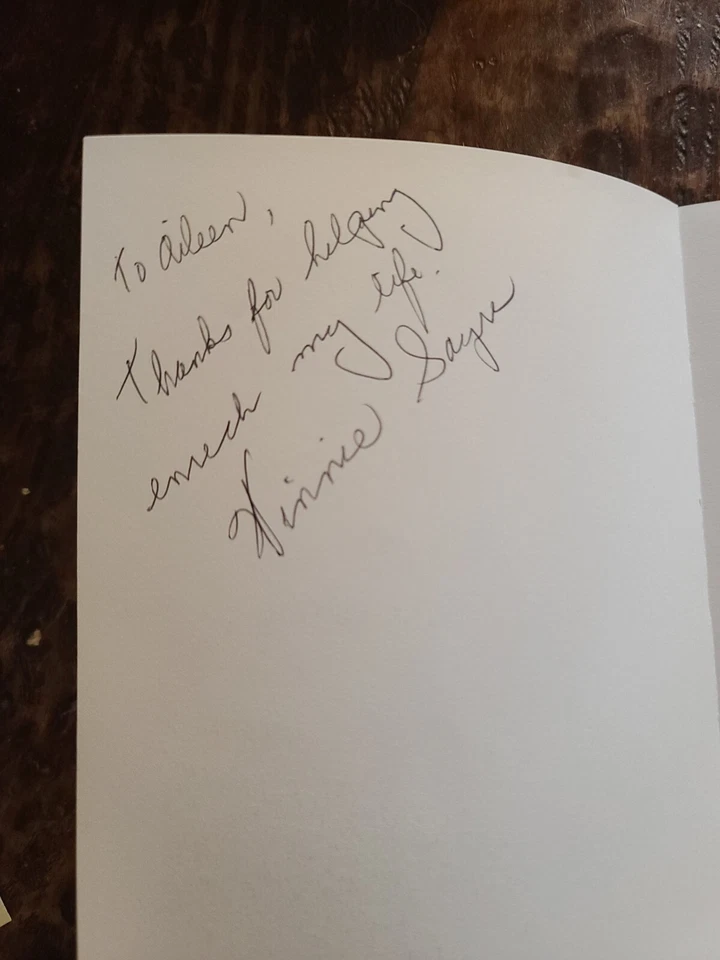 To Aileen,
Thanks for helping
enrich my life.
Winnie Sayre